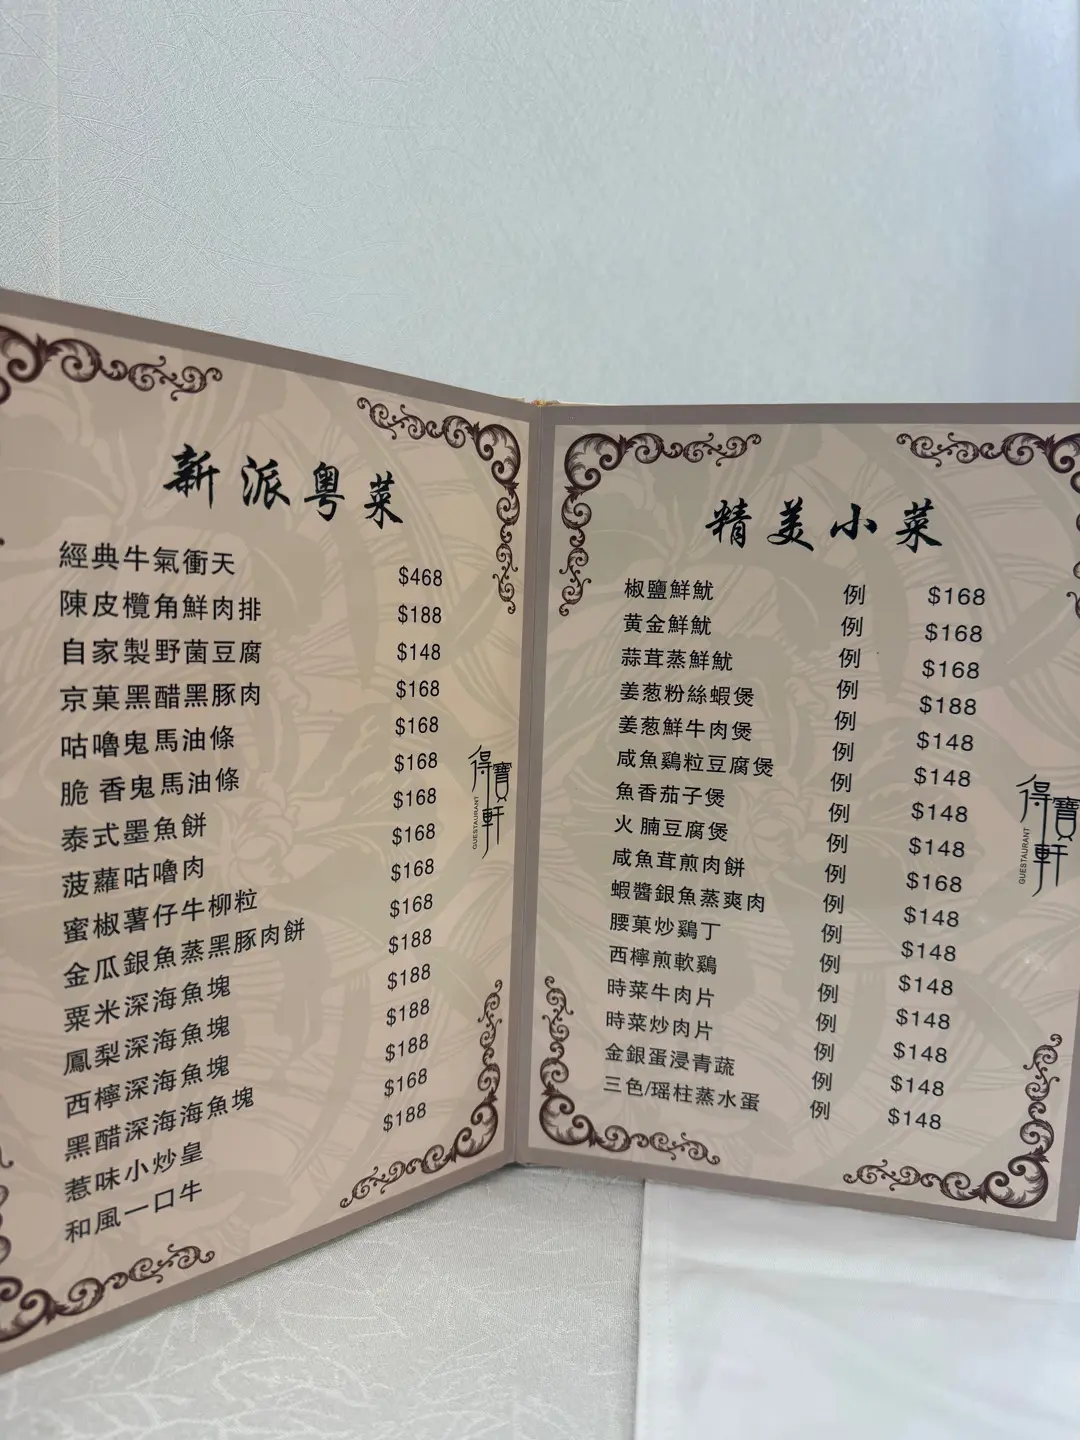 新派粵菜
經典牛氣衝天 $468
陳皮欖角鮮肉排 $188
自家製野菌豆腐 $148
京菓黑醋黑豚肉 $168
咕嚕鬼馬油條 $168
脆香鬼馬油條 $168
泰式墨魚餅 $168
菠蘿咕嚕肉 $168
蜜椒薯仔牛柳粒 $168
金瓜銀魚蒸黑豚肉餅 $168
粟米深海魚塊 $188
鳳梨深海魚塊 $188
西檸深海魚塊 $188
黑醋深海海魚塊 $188
惹味小炒皇 $168
和風一口牛 $188
得寶軒
GUESTAURANT
精美小菜
椒鹽鮮魷 例 $168
黄金鮮魷 例 $168
蒜茸蒸鮮魷 例 $168
姜葱粉絲蝦煲 例 $188
姜葱鮮牛肉煲 例 $148
咸魚鷄粒豆腐煲 例 $148
魚香茄子煲 例 $148
火腩豆腐煲 例 $148
咸魚茸煎肉餅 例 $168
蝦醬銀魚蒸爽肉 例 $148
腰菓炒鷄丁 例 $148
西檸煎軟鷄 例 $148
時菜牛肉片 例 $148
時菜炒肉片 例 $148
金銀蛋浸青蔬 例 $148
三色/瑶柱蒸水蛋 例 $148
得寶軒
GUESTAURANT